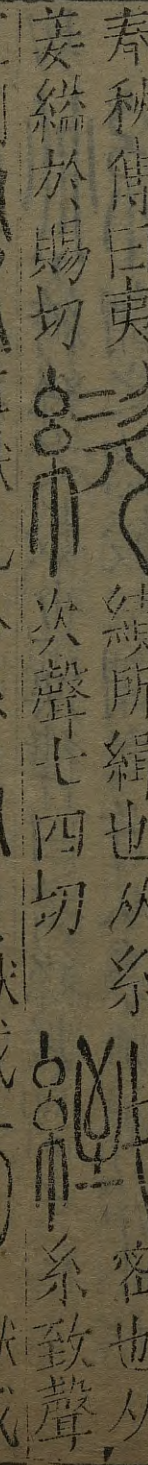 春秋傳曰夷
姜縊於賜切
絘
績所緝也从糸
次聲七四切
緻
密也从
糸致聲